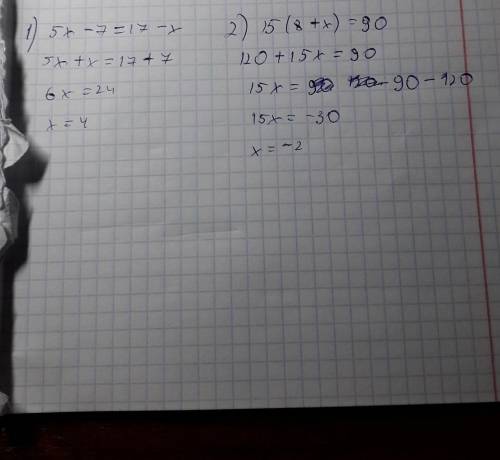 1) 5x - 7 = 17 - x
5x + x = 17 + 7
6x = 24
x = 4
2) 15 (8 + x) = 90
120 + 15x = 90
15x = 90 - 120
15x = -30
x = -2